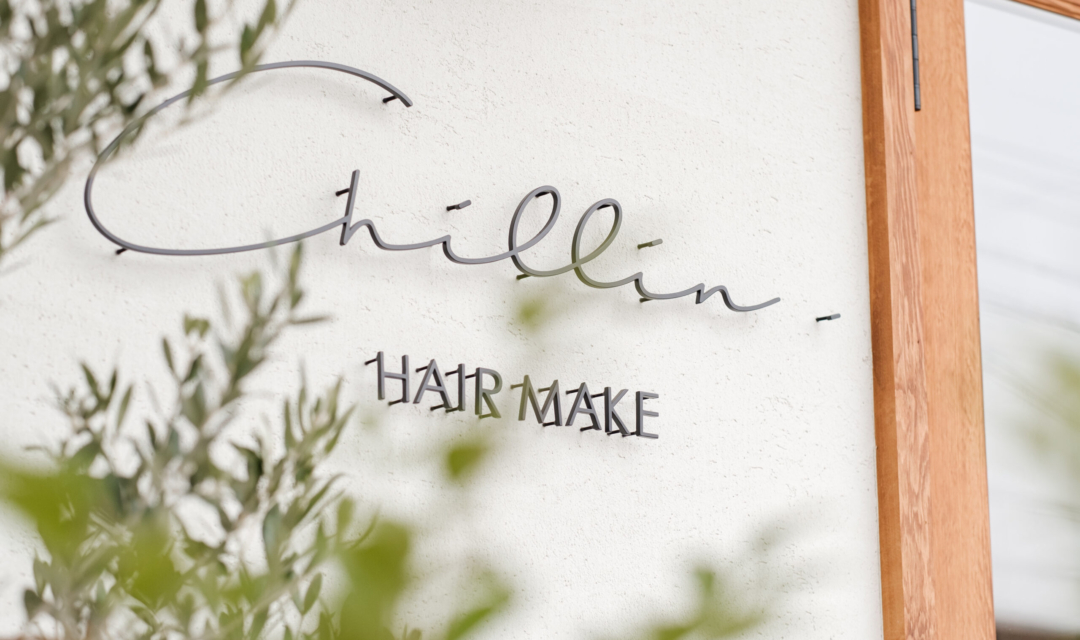 Chillin.
HAIR MAKE